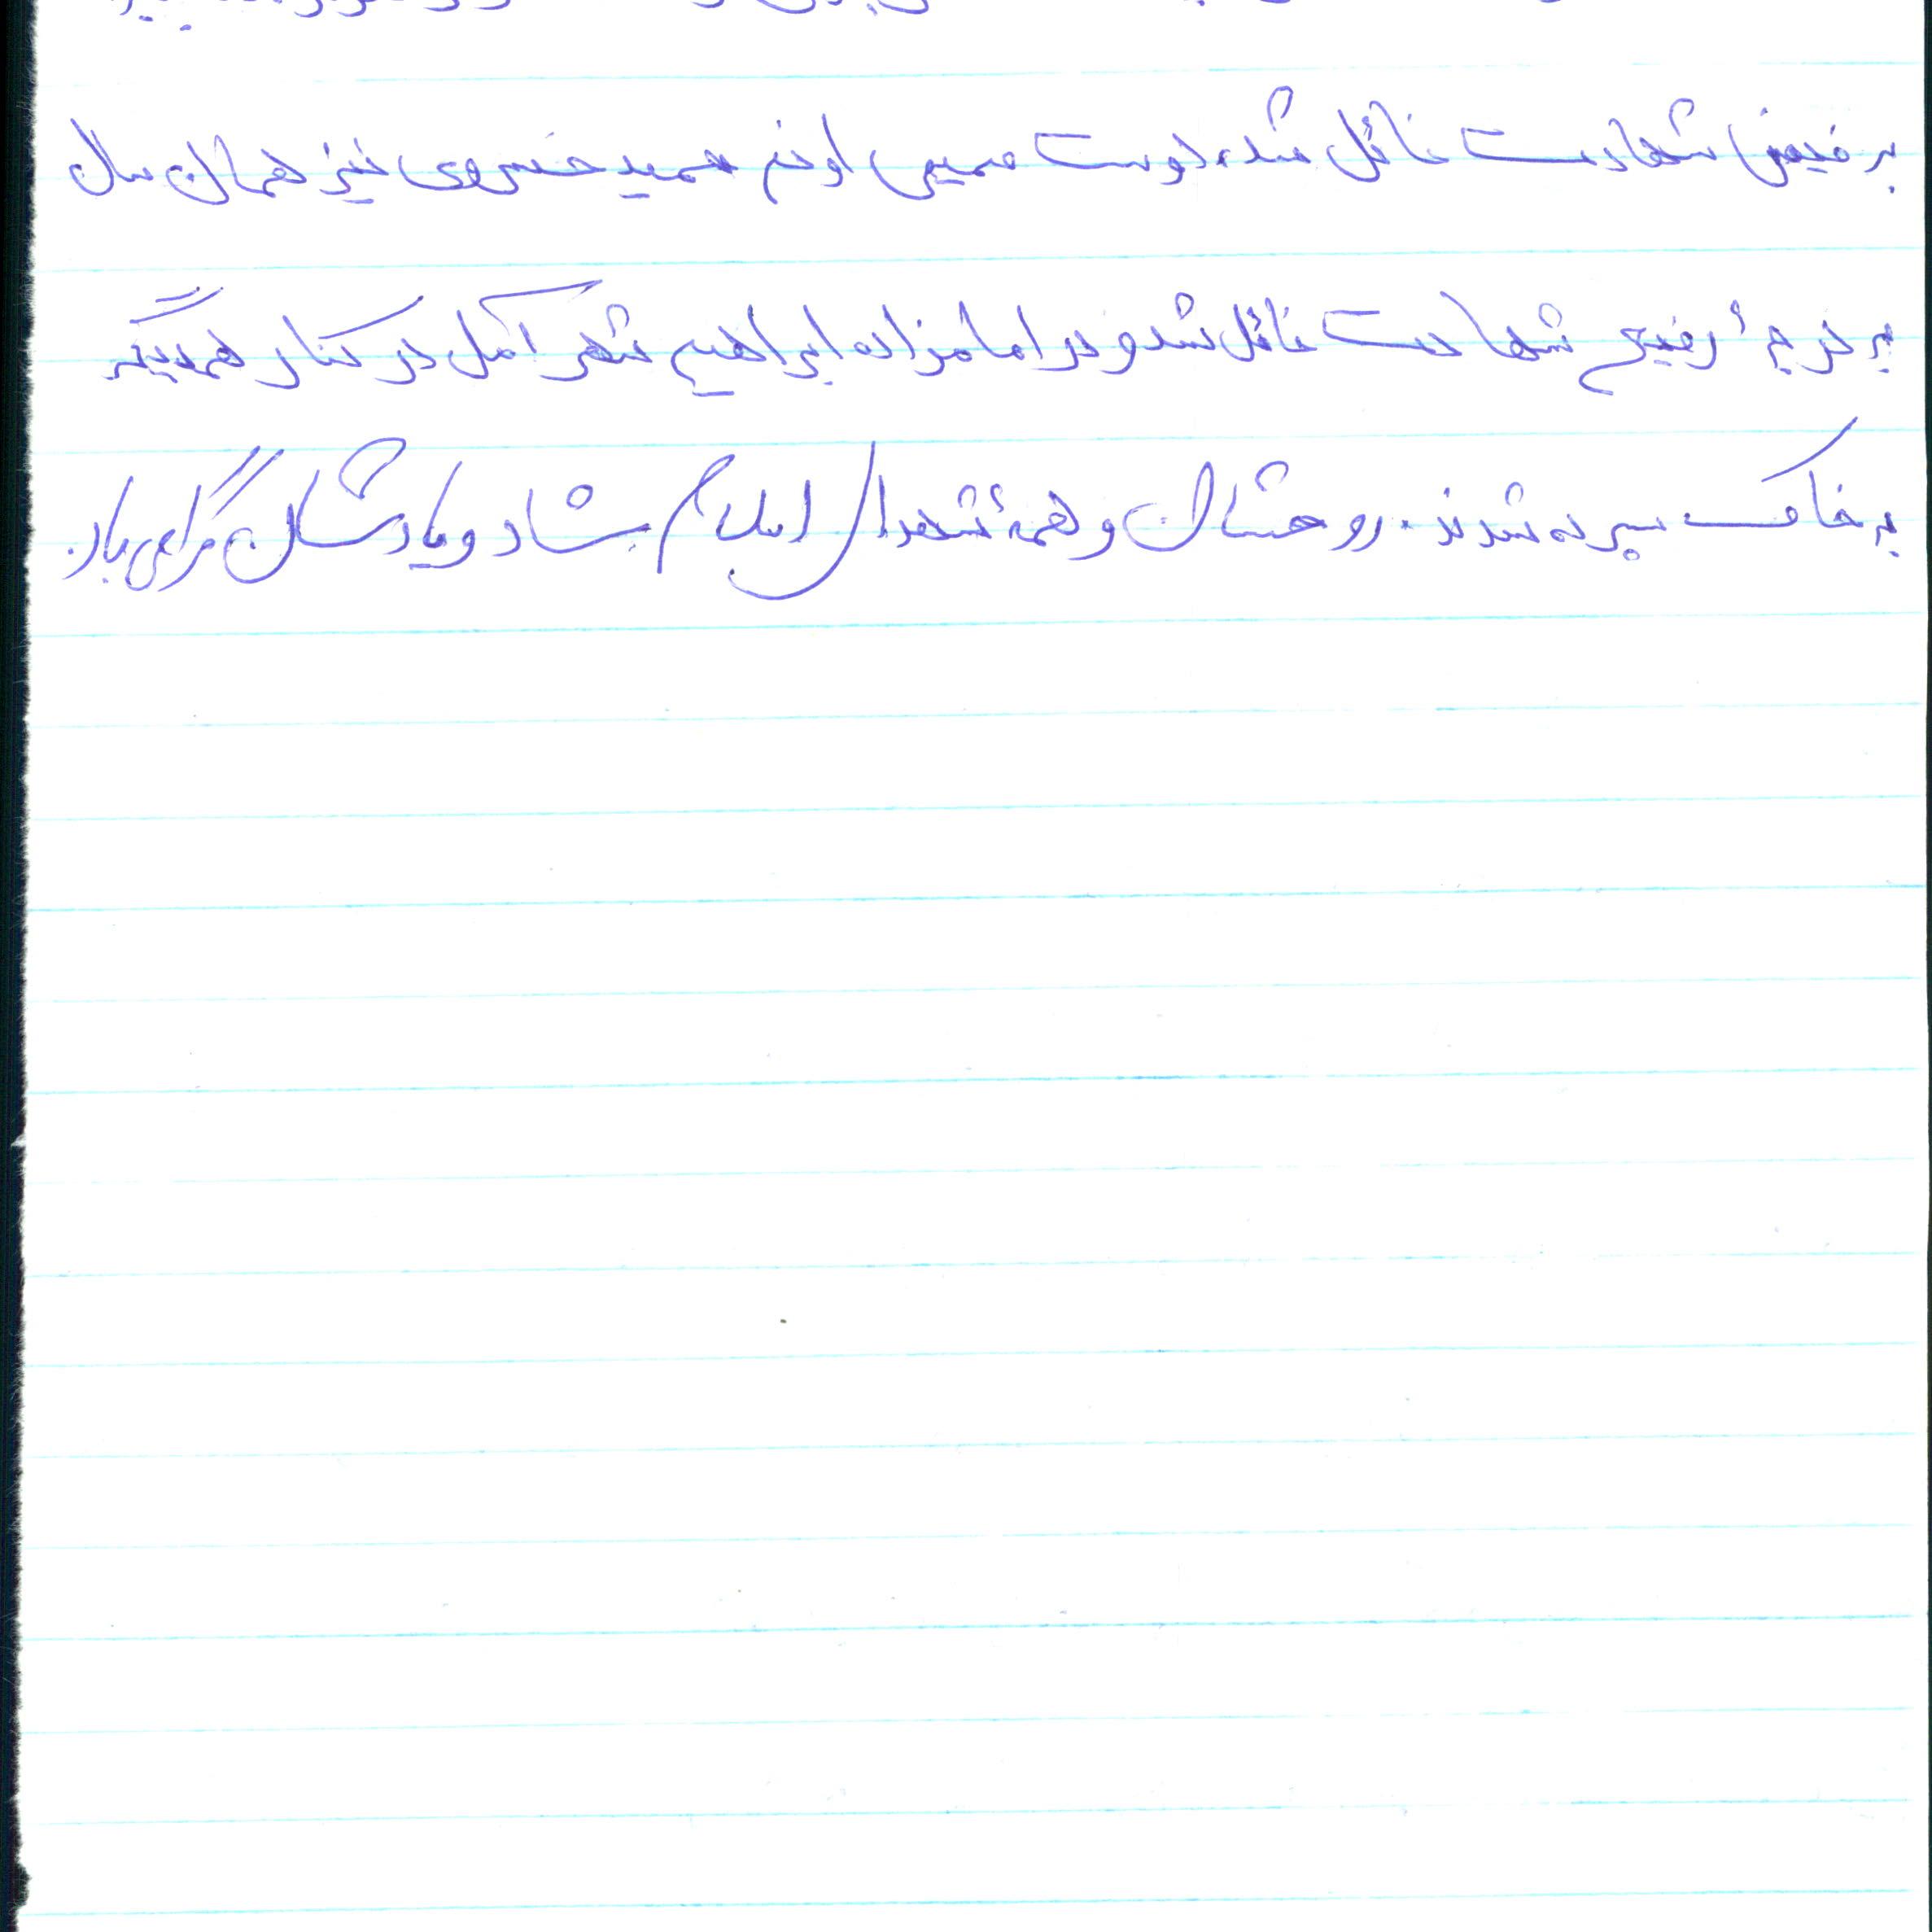 به فیض شهادت نائل شد، دوست صمیمی او نیز حمید خسروی نیز همان سال
به درجهٔ رفیع شهادت نائل شد و در امامزاده ابراهیم شهر آمل در کنار همدیگر
به خاک سپرده شدند. روحشان و همهٔ شهدای اسلام شاد و یادشان گرامی باد.